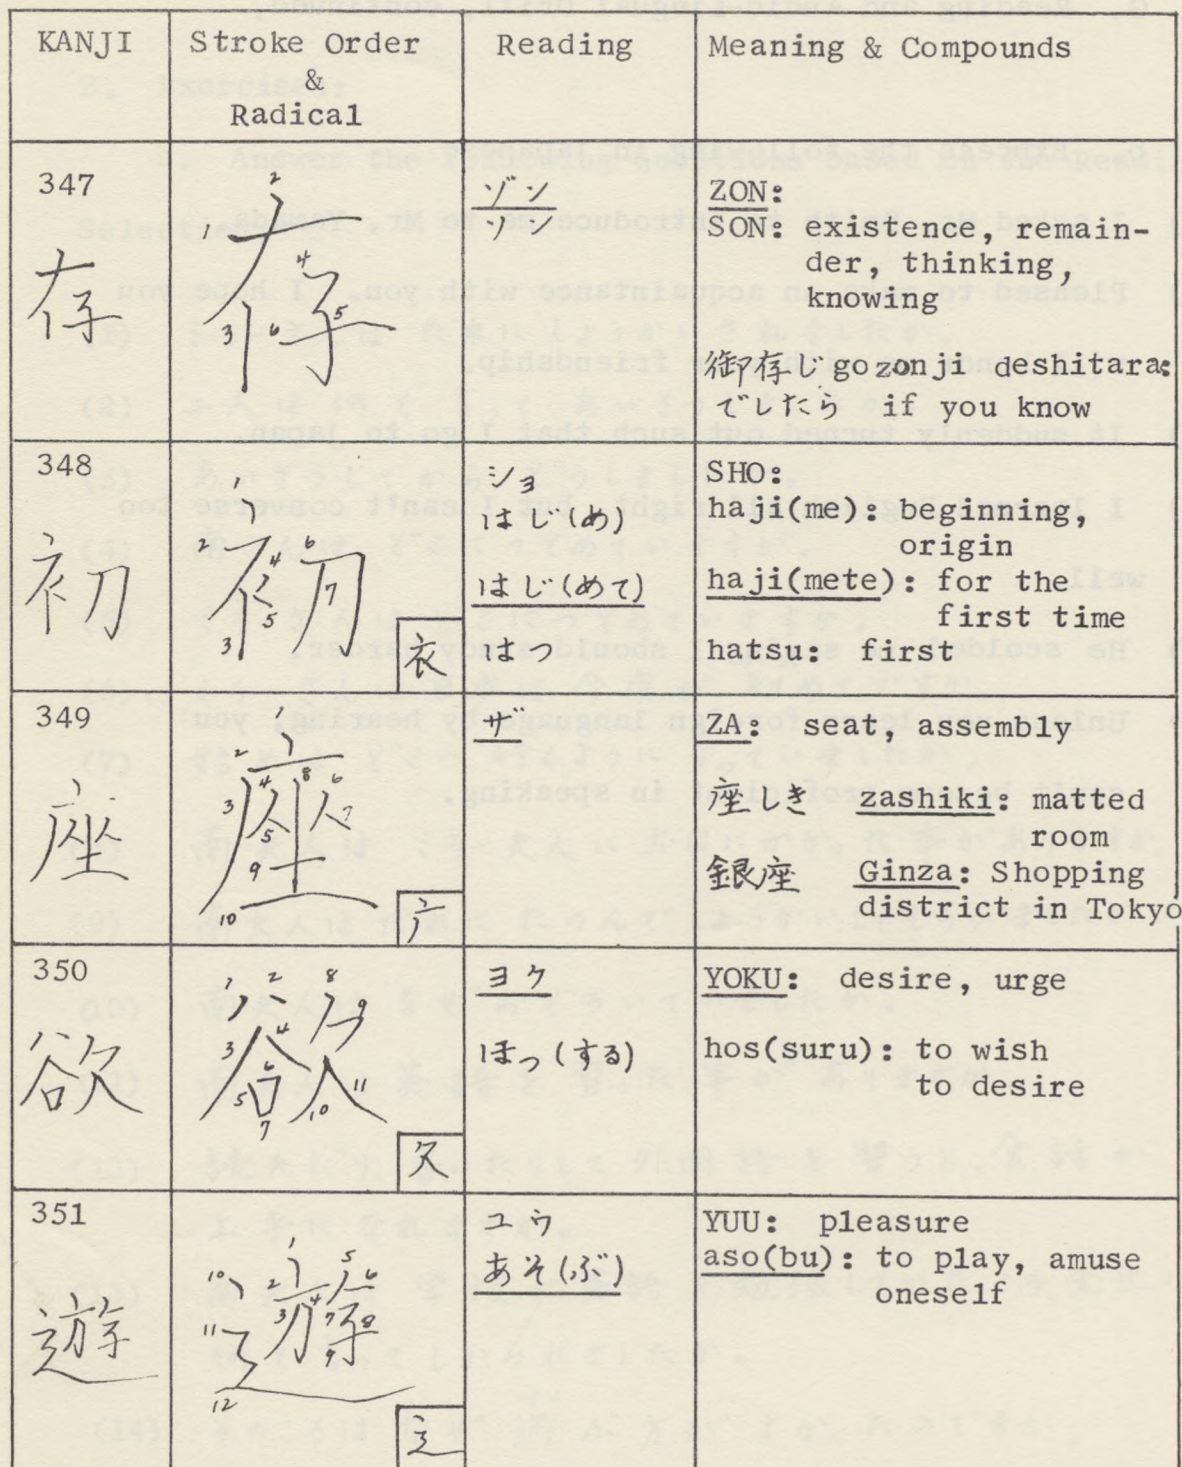 KANJI
Stroke Order
&
Radical
Reading
Meaning & Compounds
347
存
1 2 3 4 5 6
ゾン
ソン
ZON:
SON: existence, remain-
der, thinking,
knowing
御存じ gozonji deshitara:
でしたら if you know
348
初
1 2 3 4 5 6 7
衣
ショ
はじ(め)
はじ(めて)
はつ
SHO:
haji(me): beginning,
origin
haji(mete): for the
first time
hatsu: first
349
座
1 2 3 4 5 6 7 8 9 10
广
ザ
ZA: seat, assembly
座しき zashiki: matted
room
銀座 Ginza: Shopping
district in Tokyo
350
欲
1 2 3 4 5 6 7 8 9 10 11
欠
ヨク
ほっ(する)
YOKU: desire, urge
hos(suru): to wish
to desire
351
遊
1 2 3 4 5 6 7 8 9 10 11 12
辶
ユウ
あそ(ぶ)
YUU: pleasure
aso(bu): to play, amuse
oneself